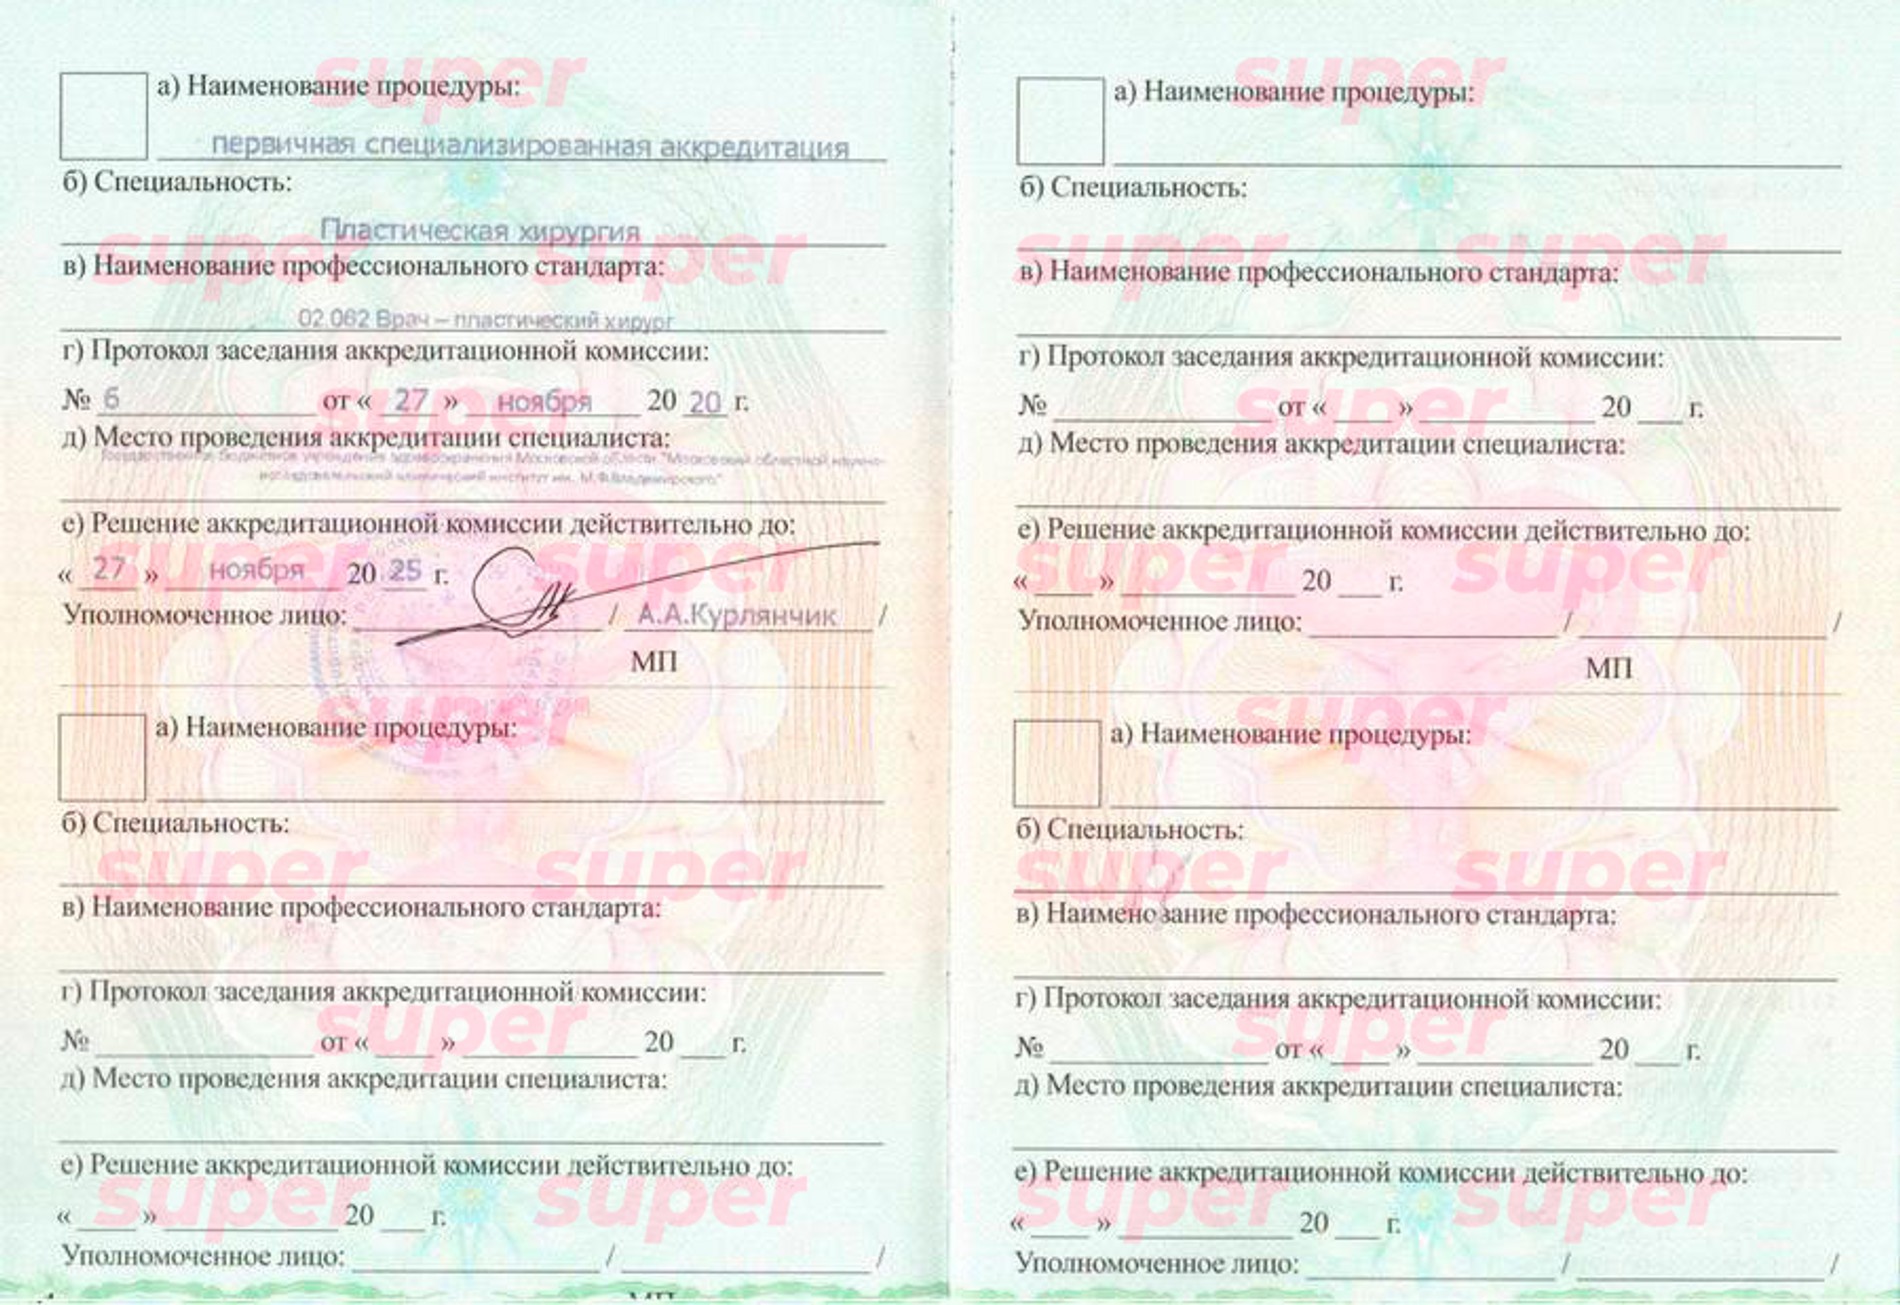 а) Наименование процедуры:
первичная специализированная аккредитация
б) Специальность:
Пластическая хирургия
в) Наименование профессионального стандарта:
02.062 Врач – пластический хирург
г) Протокол заседания аккредитационной комиссии:
№ 6 от « 27 » ноября 20 20 г.
д) Место проведения аккредитации специалиста:
Государственное бюджетное учреждение здравоохранения Московской области "Московский областной научно-
исследовательский клинический институт им. М.Ф.Владимирского"
е) Решение аккредитационной комиссии действительно до:
« 27 » ноября 20 25 г.
Уполномоченное лицо: / А.А.Курлянчик /
МП
а) Наименование процедуры:
б) Специальность:
в) Наименование профессионального стандарта:
г) Протокол заседания аккредитационной комиссии:
№ от « » 20 г.
д) Место проведения аккредитации специалиста:
е) Решение аккредитационной комиссии действительно до:
« » 20 г.
Уполномоченное лицо: / /
МП
а) Наименование процедуры:
б) Специальность:
в) Наименование профессионального стандарта:
г) Протокол заседания аккредитационной комиссии:
№ от « » 20 г.
д) Место проведения аккредитации специалиста:
е) Решение аккредитационной комиссии действительно до:
« » 20 г.
Уполномоченное лицо: / /
МП
а) Наименование процедуры:
б) Специальность:
в) Наименование профессионального стандарта:
г) Протокол заседания аккредитационной комиссии:
№ от « » 20 г.
д) Место проведения аккредитации специалиста:
е) Решение аккредитационной комиссии действительно до:
« » 20 г.
Уполномоченное лицо: / /
super super
super super super super
super super
super super super super
super super
super super super super
super super
super super super super